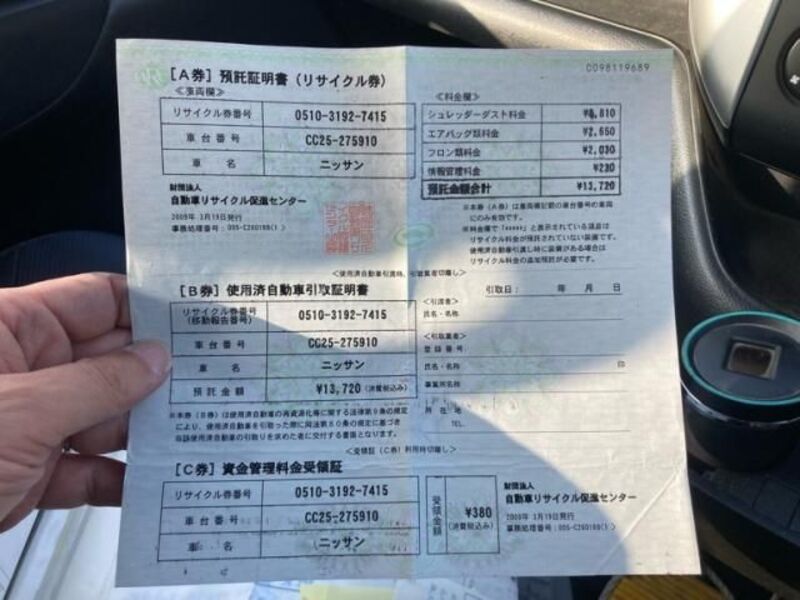 0098119689
【A券】預託証明書（リサイクル券）
≪車両欄≫
リサイクル券番号 0510-3192-7415
車台番号 CC25-275910
車名 ニッサン
≪料金欄≫
シュレッダーダスト料金 ¥8,810
エアバッグ類料金 ¥2,650
フロン類料金 ¥2,030
情報管理料金 ¥230
預託金額合計 ¥13,720
財団法人
自動車リサイクル促進センター
2009年 3月19日発行
※本券（A券）は車両欄記載の車台番号の車両
にのみ有効です。
※料金欄で「*****」と表示されている項目は
リサイクル料金が預託されていない装備です。
使用済自動車引渡し時に装備がある場合は
リサイクル料金の追加預託が必要です。
＜使用済自動車引渡時、引取業者切離し＞
【B券】使用済自動車引取証明書
リサイクル券番号
(移動報告番号) 0510-3192-7415
車台番号 CC25-275910
車名 ニッサン
預託金額 ¥13,720 (消費税込み)
引取日： 年 月 日
＜引渡者＞
氏名・名称
＜引取業者＞
登録番号
氏名・名称 印
事業所名称
所在地
TEL.
※本券（B券）は使用済自動車の再資源化等に関する法律第9条の規定
により、使用済自動車を引取った際に同法第80条の規定に基づき
当該使用済自動車の引取りを求めた者に交付する書面となります。
＜受領証（C券）利用時切離し＞
【C券】資金管理料金受領証
リサイクル券番号 0510-3192-7415
車台番号 CC25-275910
車名 ニッサン
受領金額 ¥380
(消費税込み)
財団法人
自動車リサイクル促進センター
2009年 3月19日発行